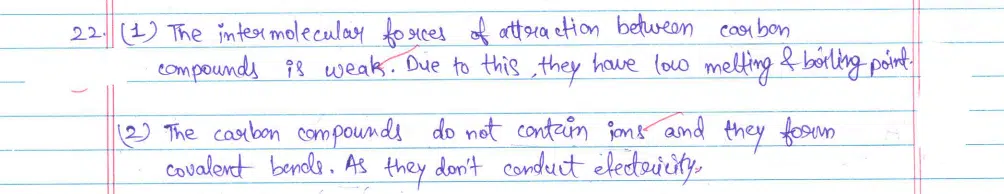 22. (1) The intermolecular forces of attraction between carbon
compounds is weak. Due to this, they have low melting & boiling point.
(2) The carbon compounds do not contain ions and they form
covalent bonds. As they don't conduct electricity.